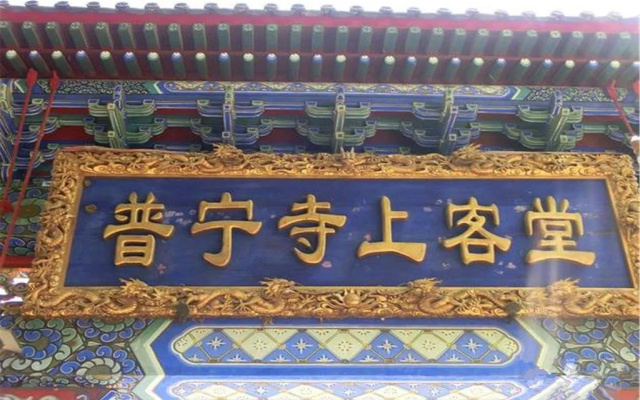 普宁寺上客堂